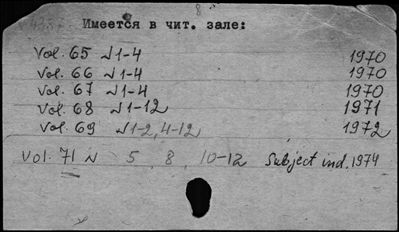 8
Имеется в чит. зале:
Vol. 65 N1-4 1970
Vol. 66 N1-4 1970
Vol. 67 N1-4 1970
Vol. 68 N1-12 1971
Vol. 69 N1-2, 4-12 1972
Vol. 71 N 5, 8, 10-12 Subject ind. 1974